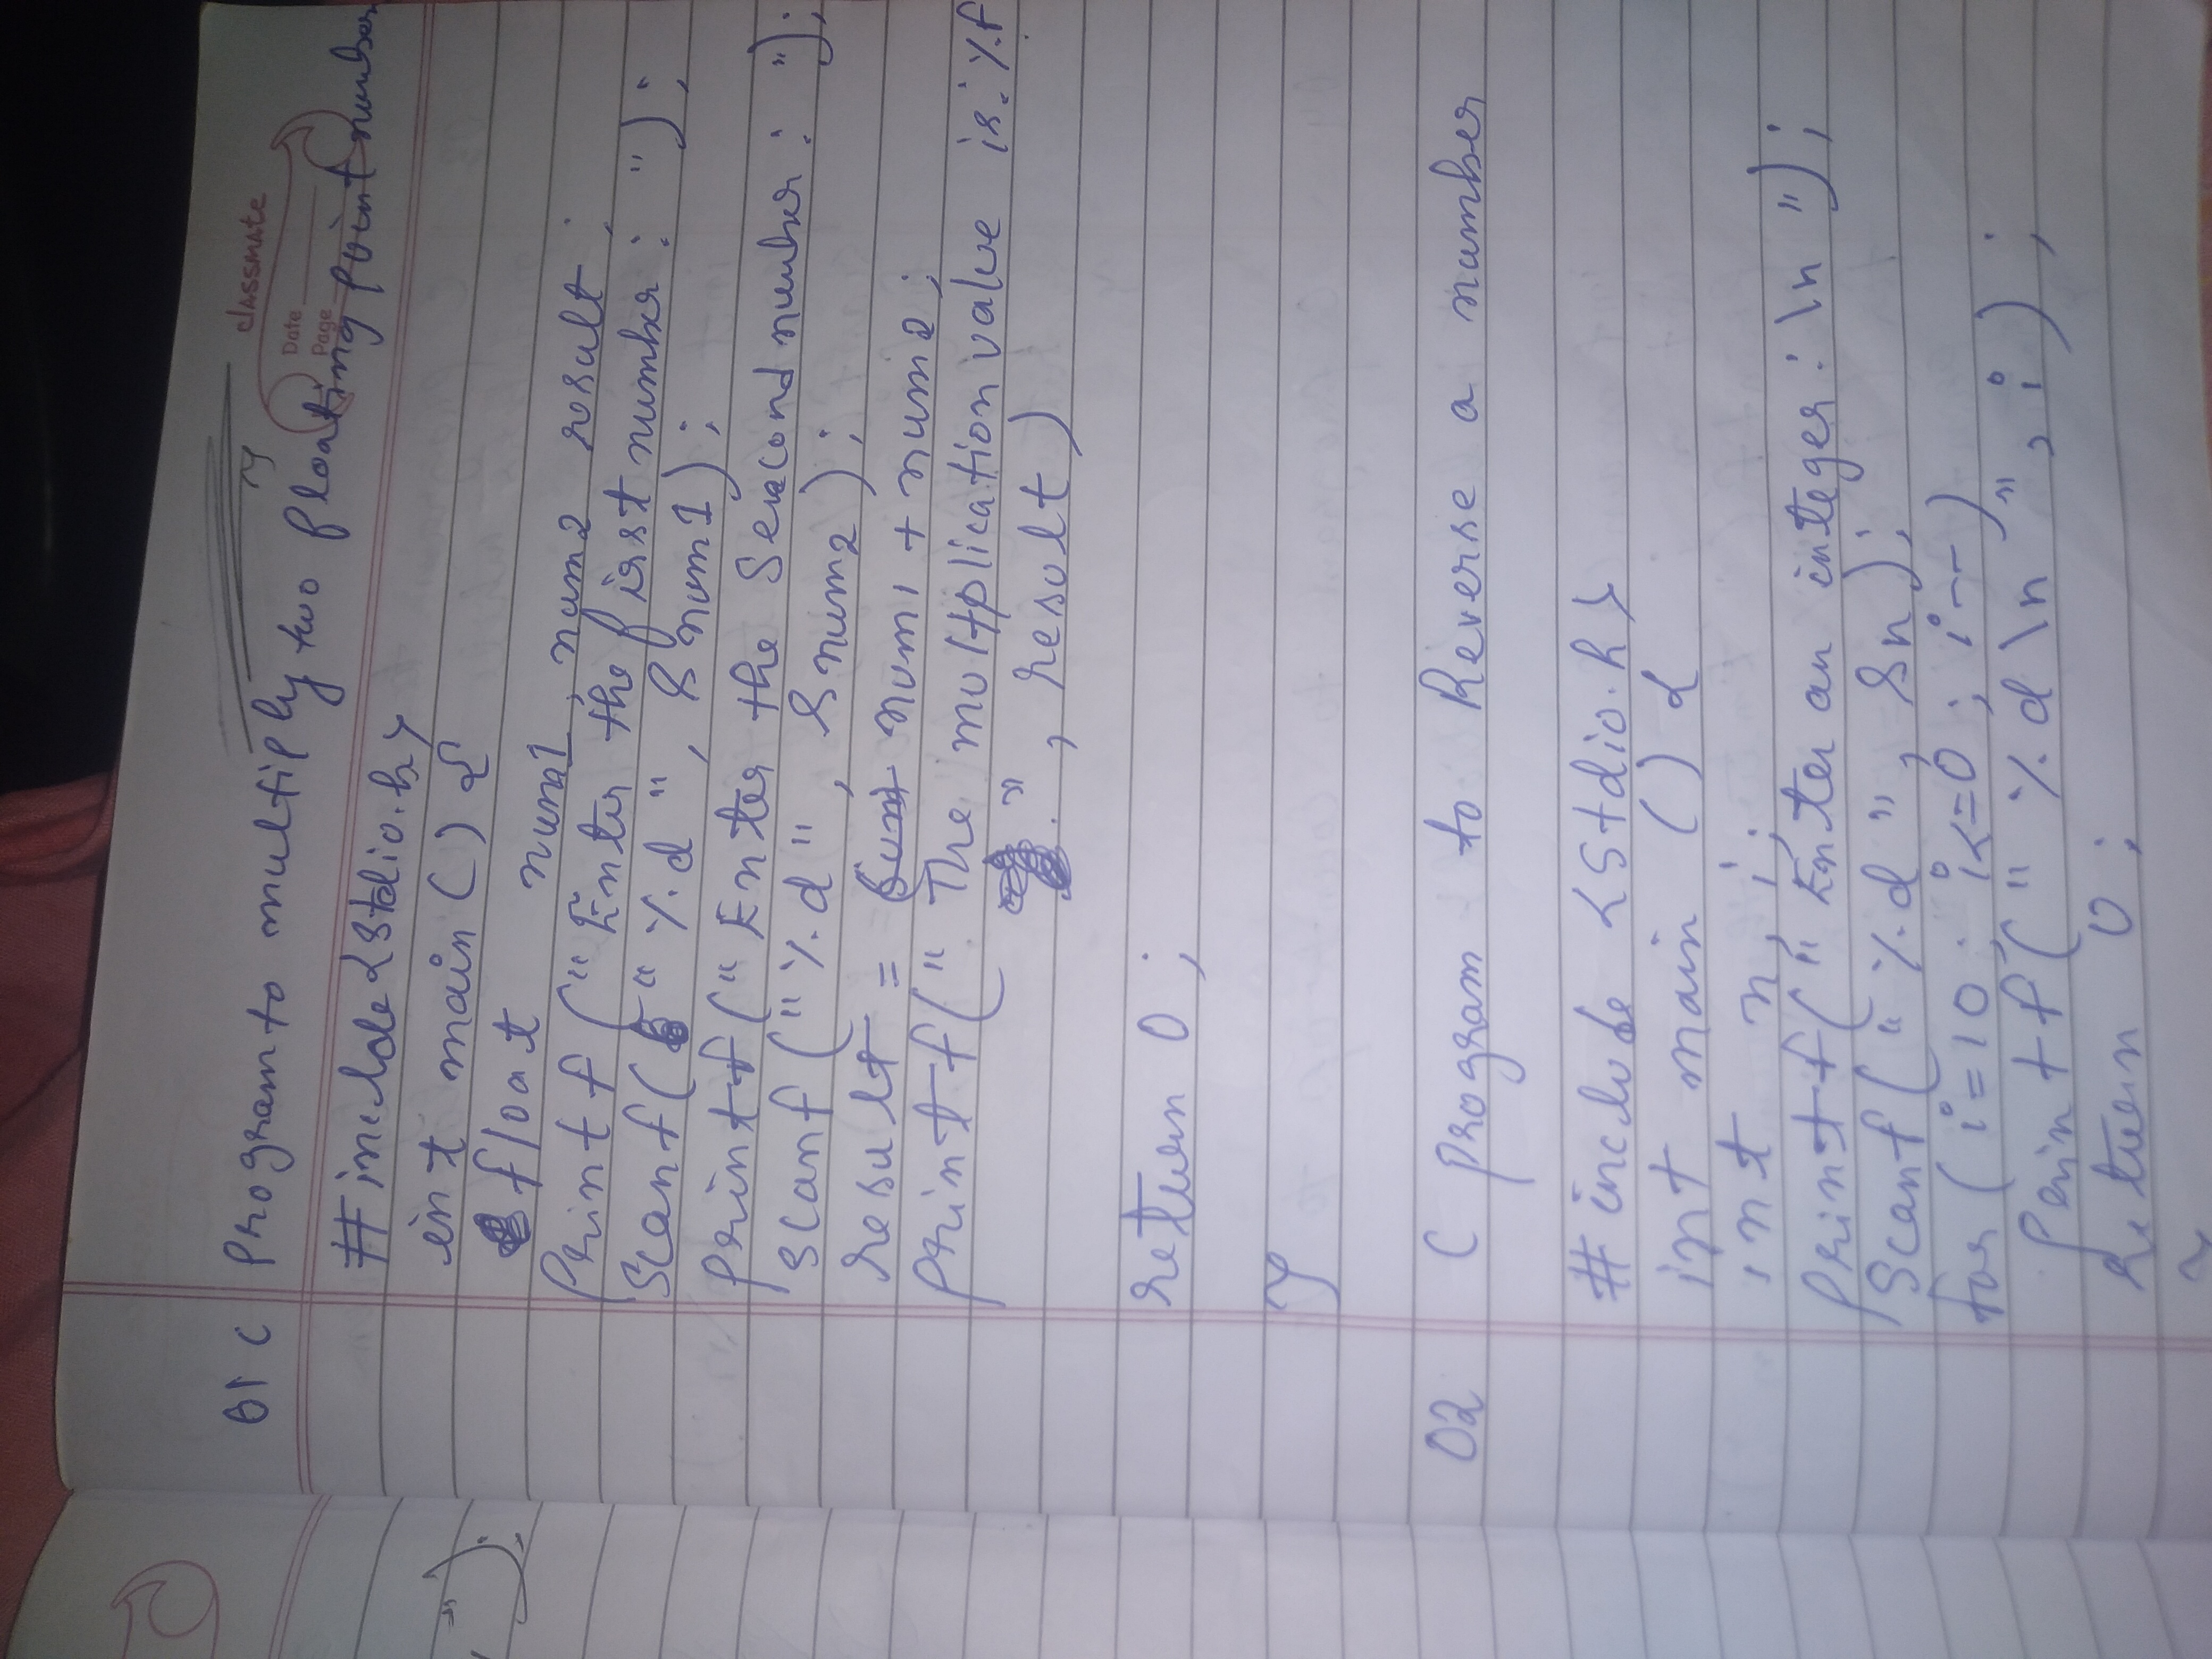 classmate
Date
Page
01 C Program to multiply two floating point number
#include<stdio.h>
int main () {
float num1, num2 result ;
printf ("Enter the first number : ");
Scanf( "%d", &num1);
printf ("Enter the Second number : ");
scanf ("%d", &num2);
result = num1 + num2;
printf (" The multplication value is: %f
", result)
return 0 ;
}
02 C program to Reverse a number
#include <stdio.h>
int main () {
int n, i;
printf (" Enter an integer: \n ");
Scanf (" %d ", &n);
for ( i=10 ; i<=0 ; i--)
printf (" %d \n ", i) ;
return 0 ;
");